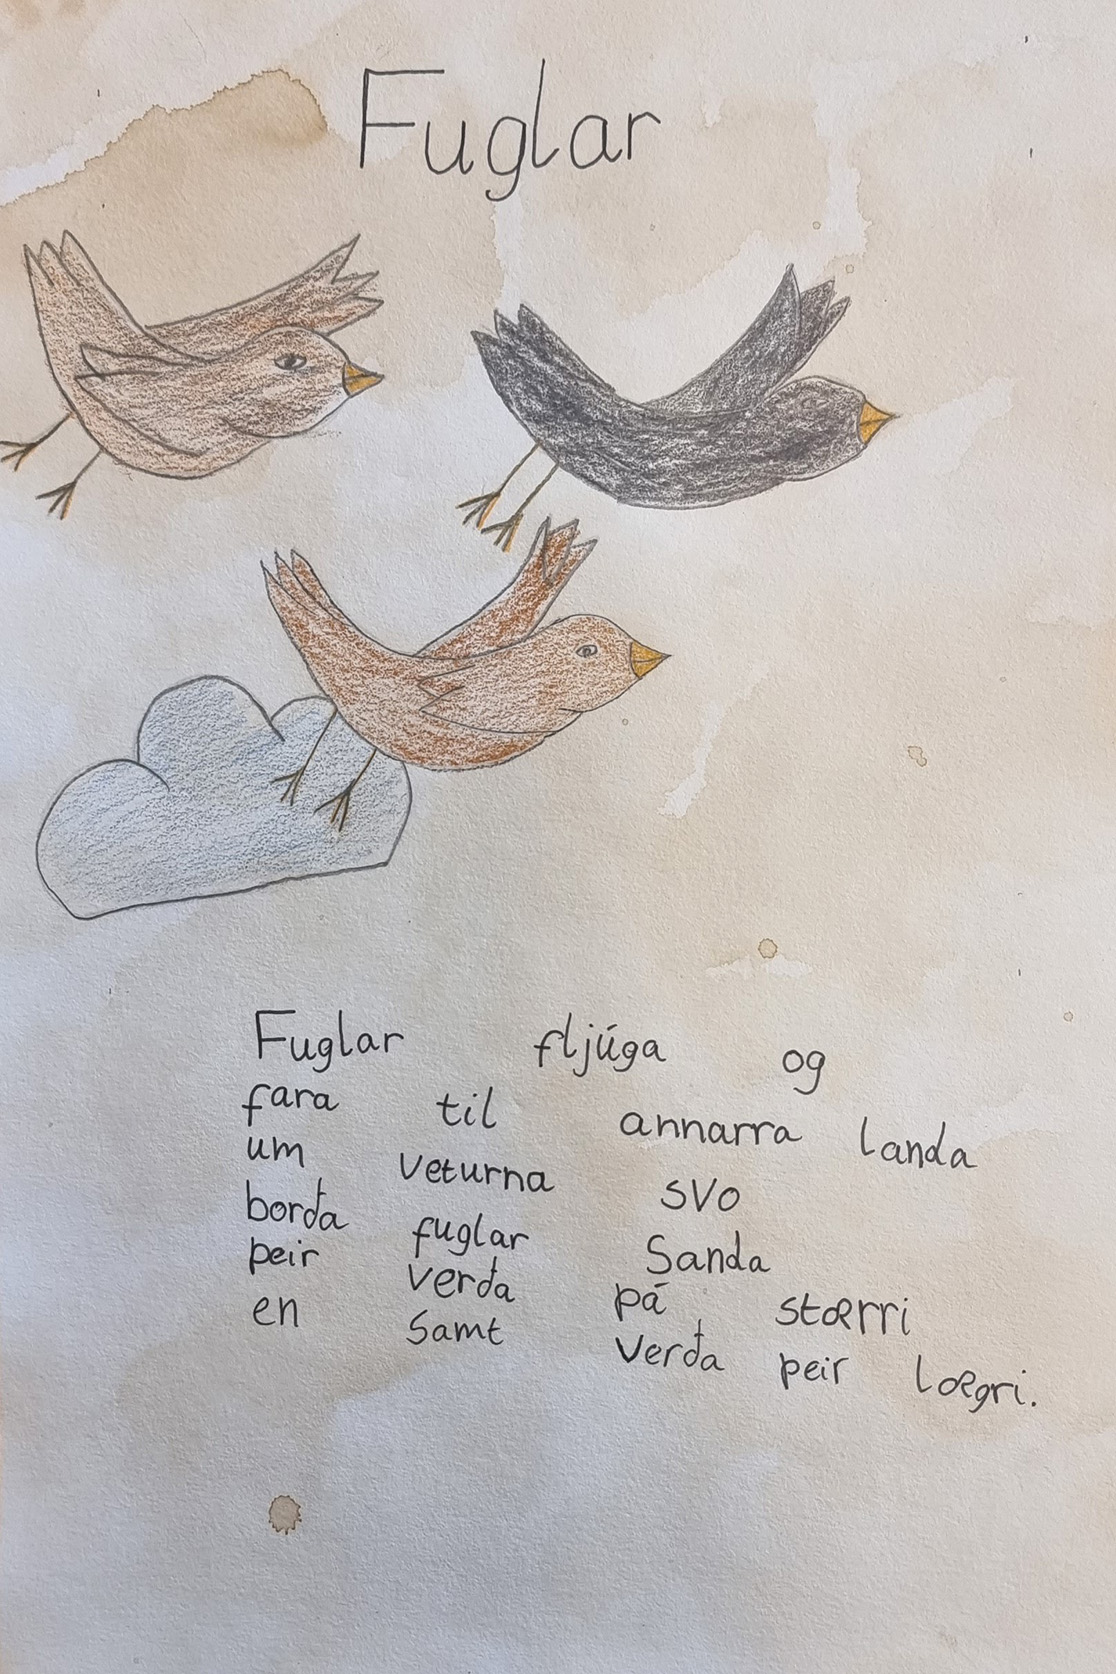 Fuglar
Fuglar fljúga og
fara til annarra landa
um veturna svo
borða fuglar Sanda
þeir verða þá stærri
en samt verða þeir lægri.